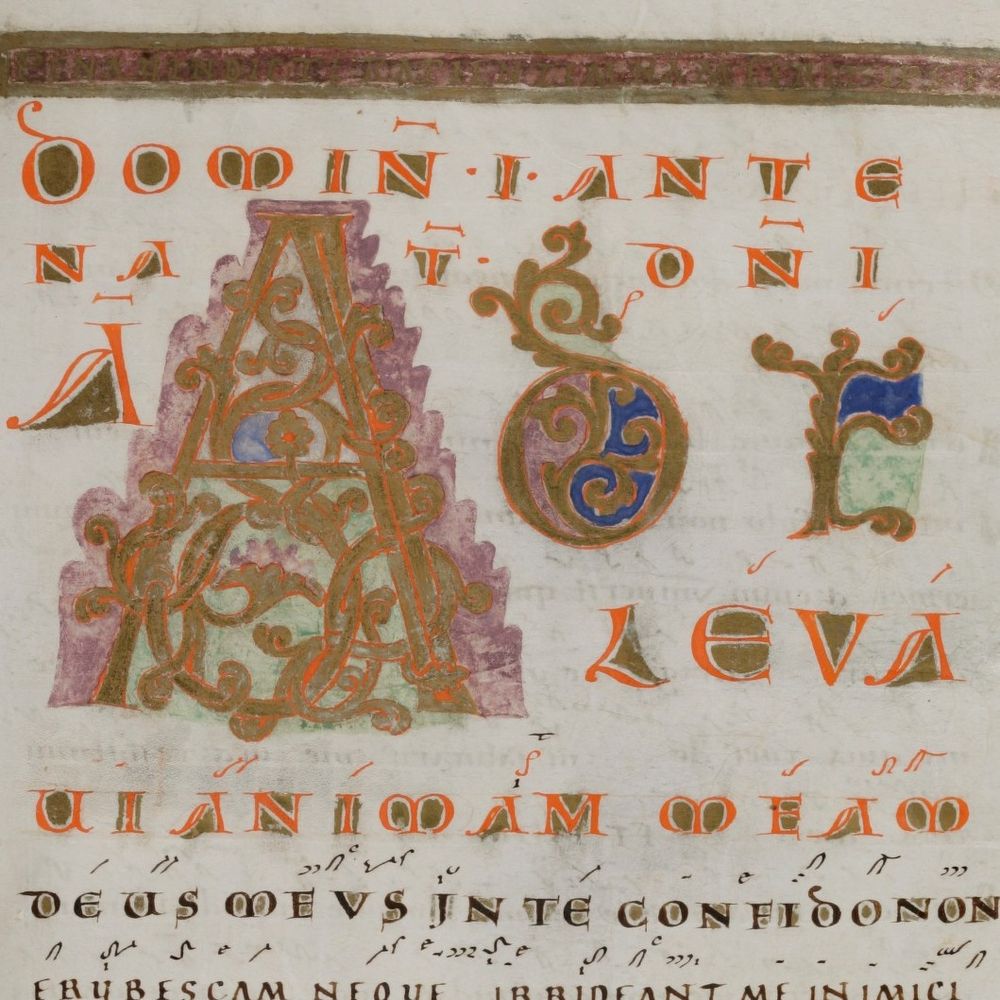 DOMIN̄·I·ANTE
NA T̄· DN̄I
Ā D T E
LEVA
UI ANIMAM MEAM
DEUS MEVS JN TE CONFIDO NON
ERUBESCAM NEQUE IRRIDEANT ME INIMICI